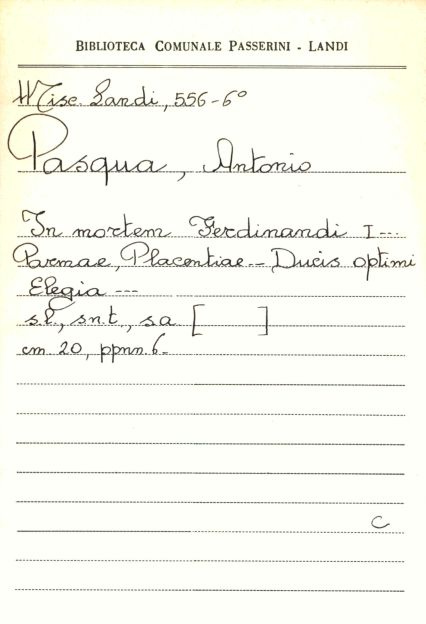 BIBLIOTECA COMUNALE PASSERINI - LANDI
Misc. Landi, 556-6°
Pasqua, Antonio
In mortem Ferdinandi I---
Parmae, Placentiae -- Ducis optimi
Elegia ---
s.l., s.n.t., s.a. [ ]
cm. 20, ppnn. 6-
C